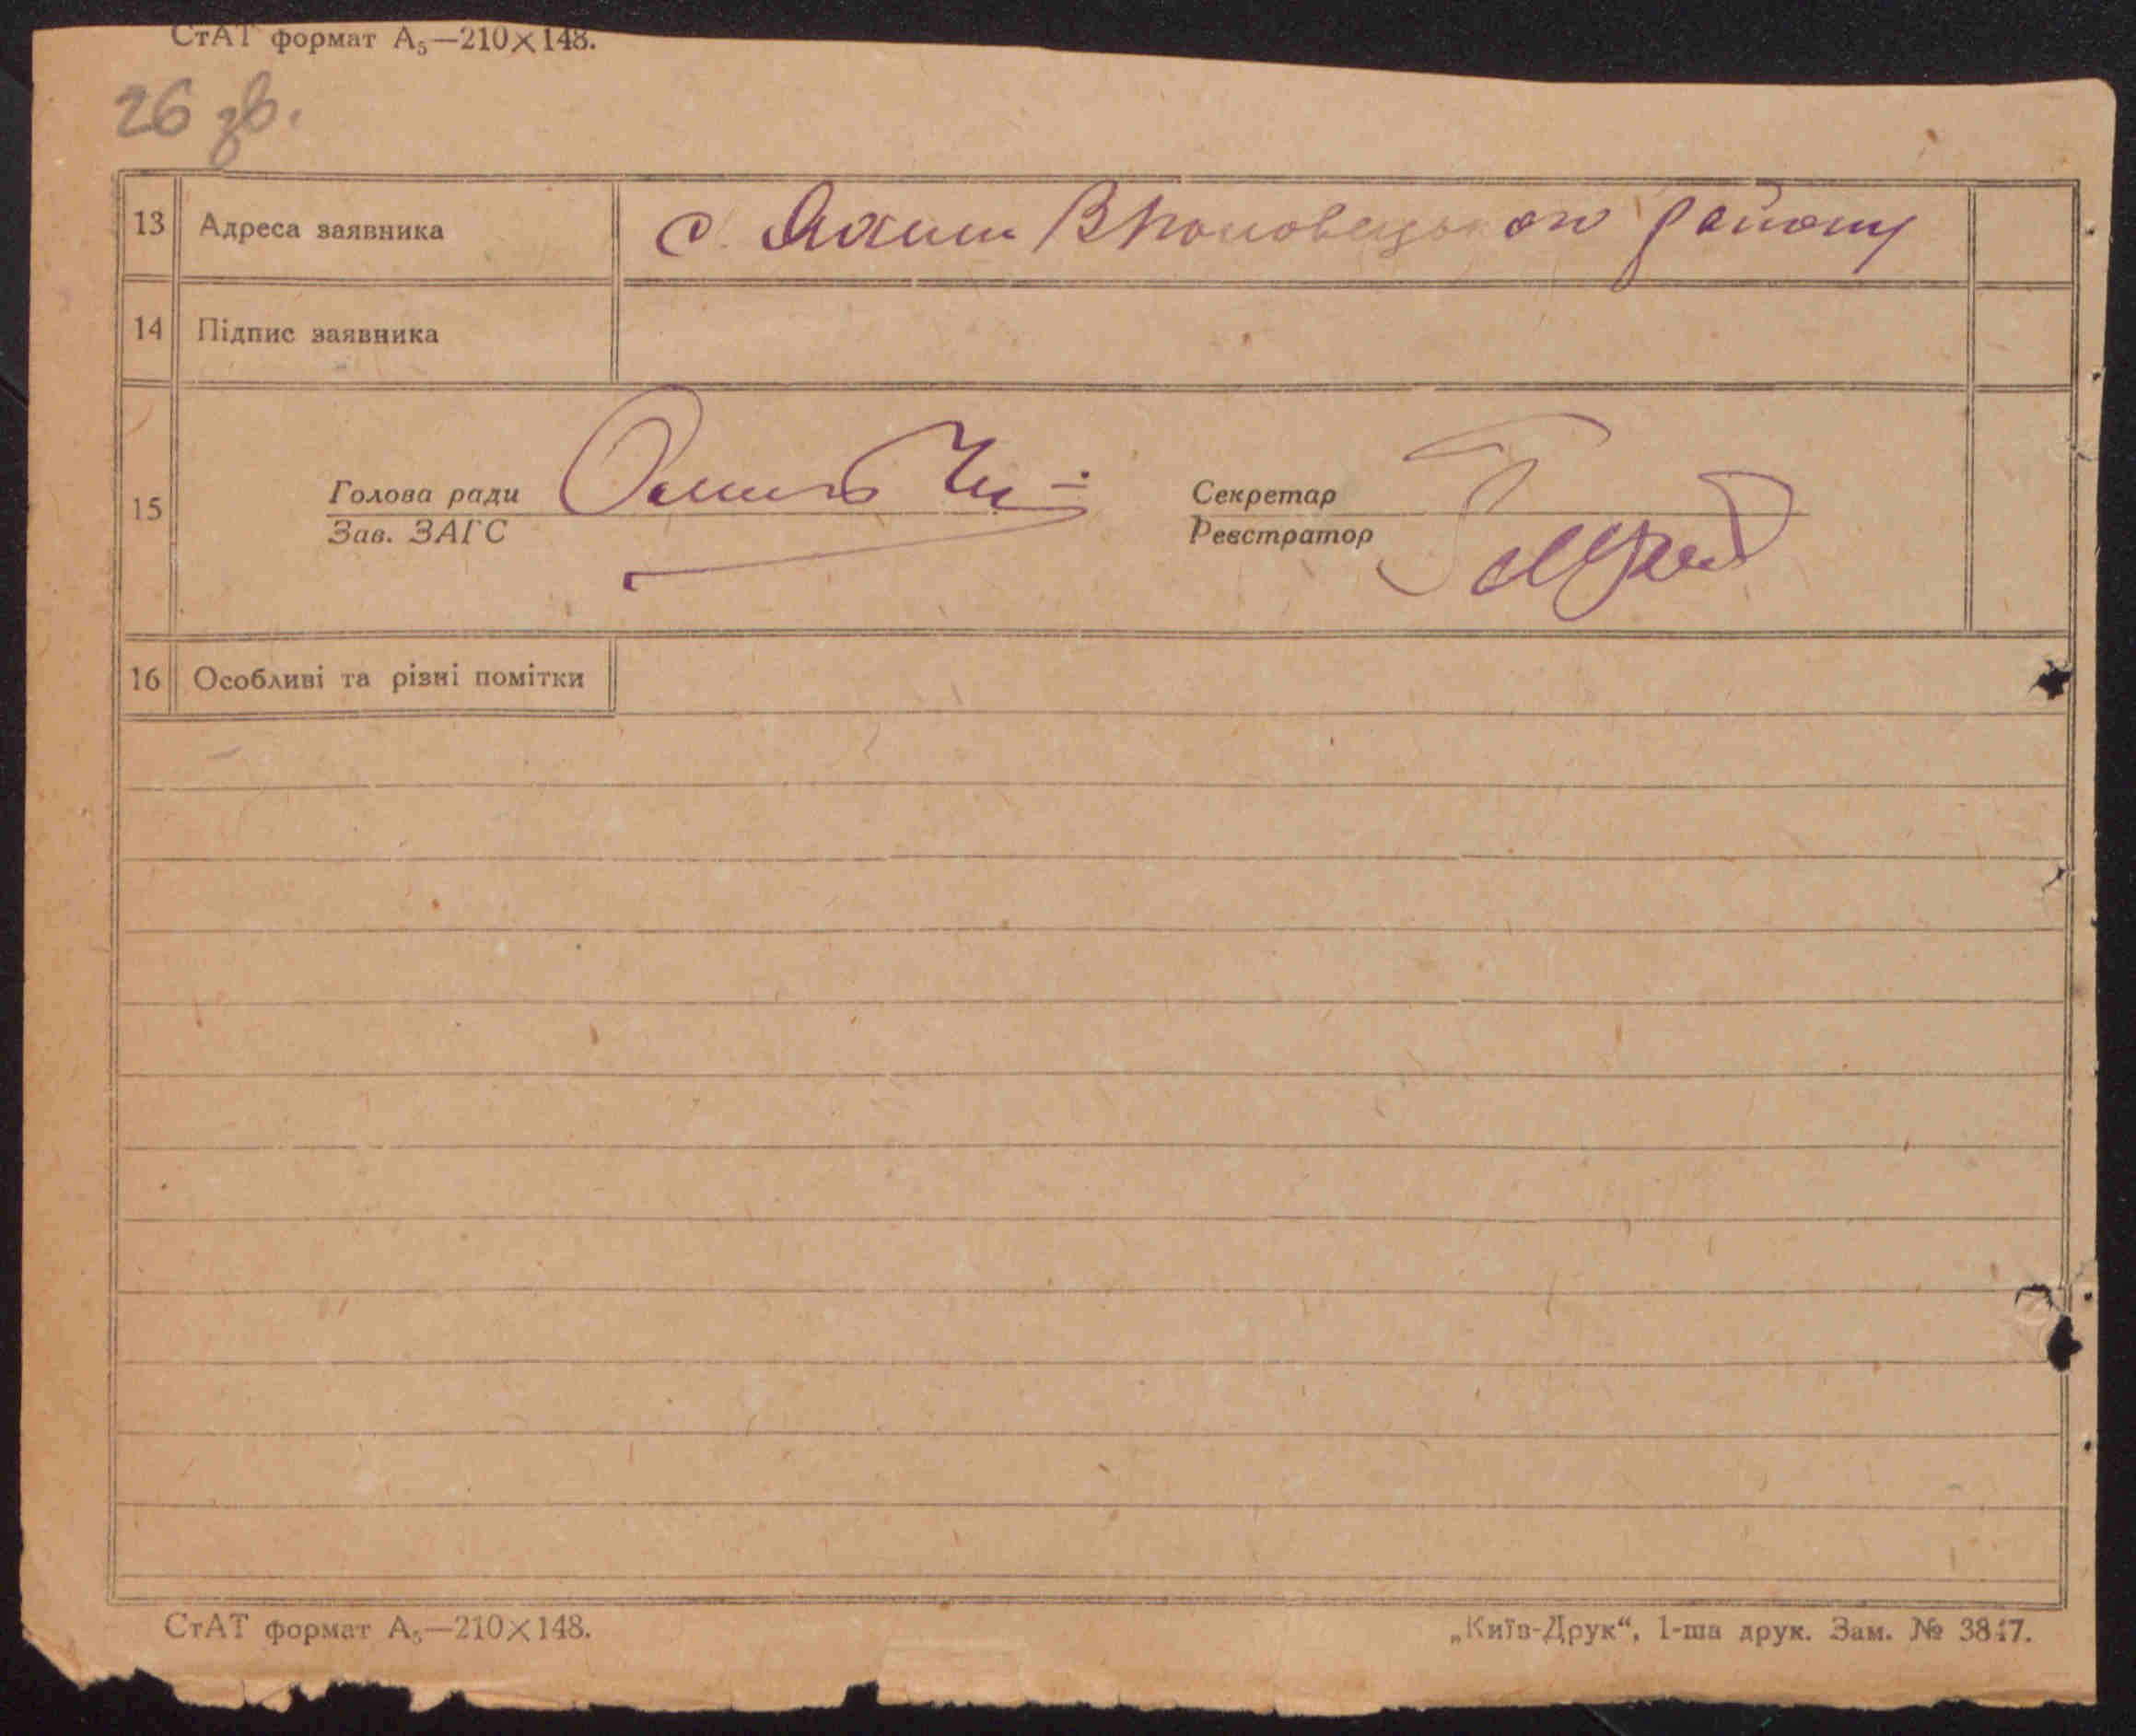 СтАТ формат А₅—210×148.
26 зв.
13 Адреса заявника с. района
14 Підпис заявника
15 Голова ради Секретар
Зав. ЗАГС Реєстратор
16 Особливі та різні помітки
СтАТ формат А₅—210×148. „Київ-Друк“, 1-ша друк. Зам. №